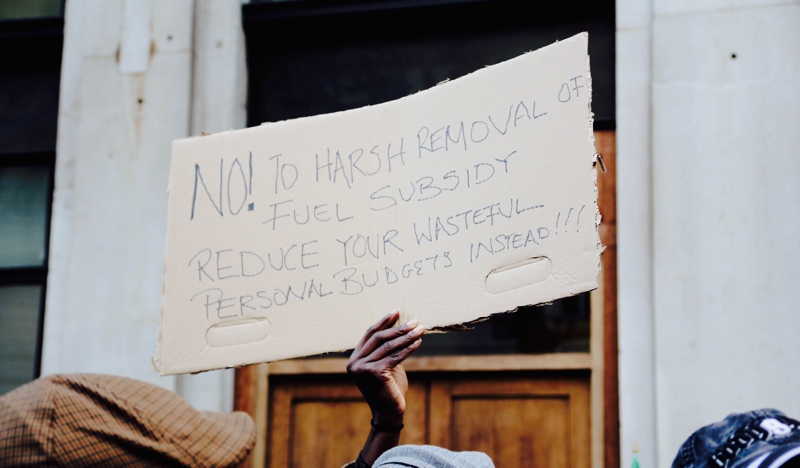 NO! TO HARSH REMOVAL OF
FUEL SUBSIDY
REDUCE YOUR WASTEFUL
PERSONAL BUDGETS INSTEAD!!!